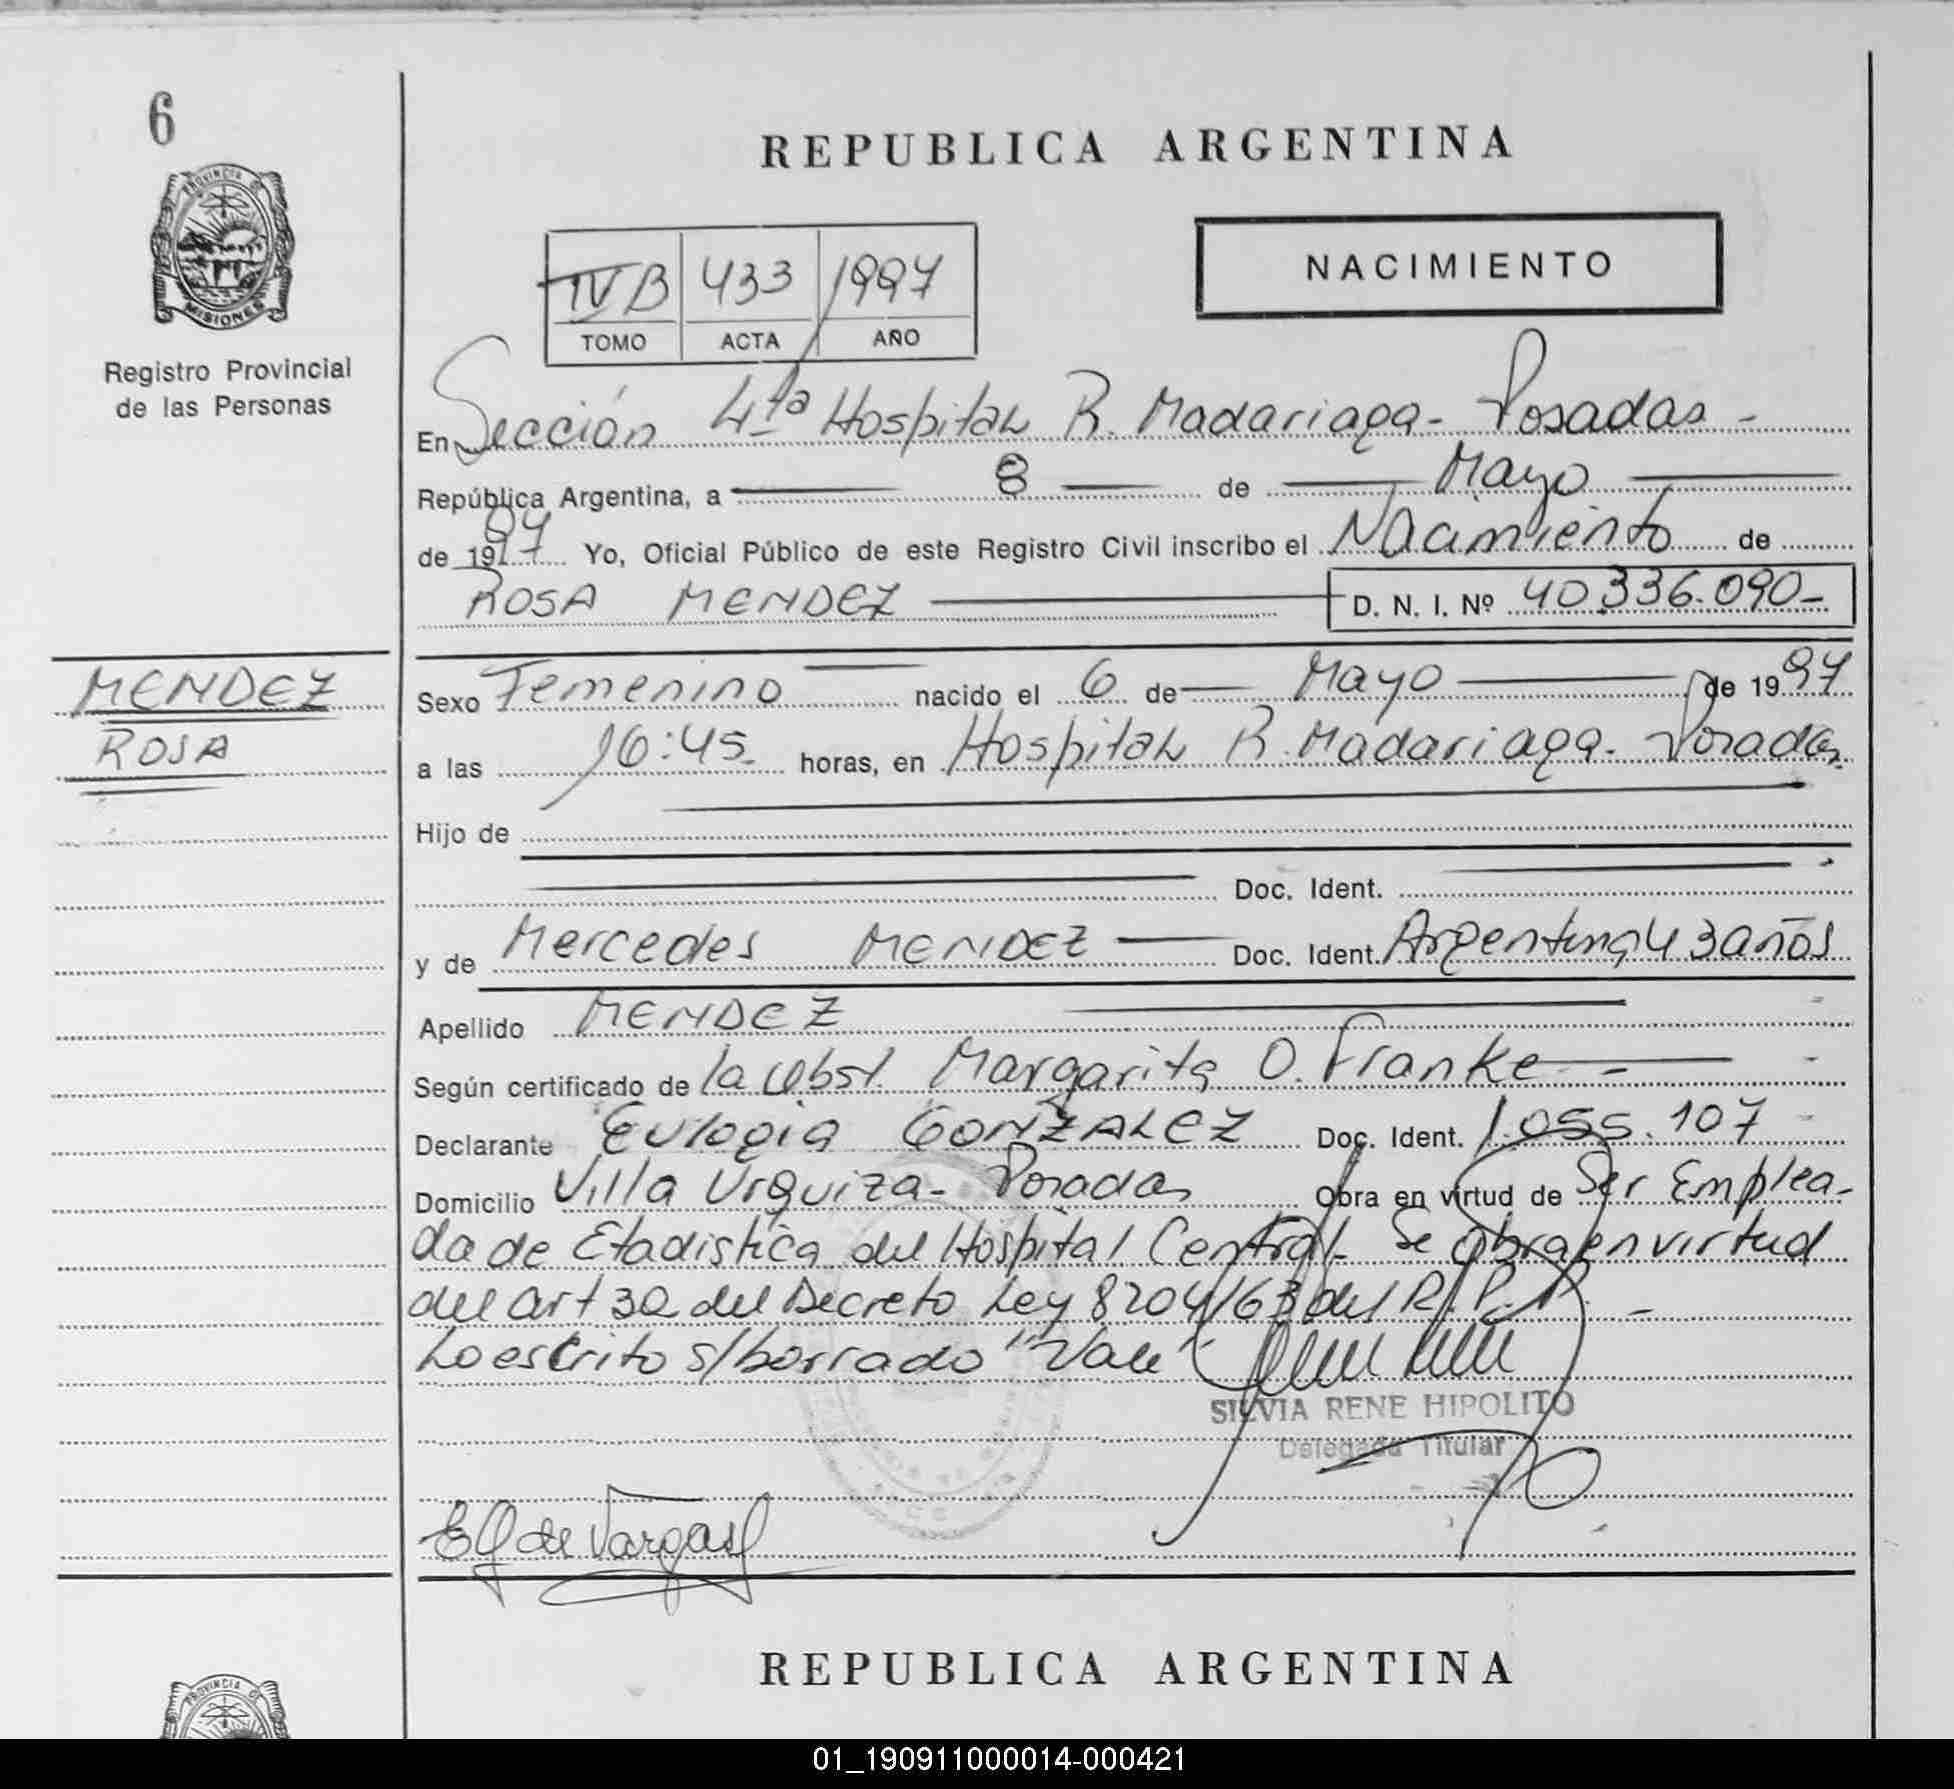 6
PROVINCIA DE
MISIONES
Registro Provincial
de las Personas
REPUBLICA ARGENTINA
IV B 433 1997
TOMO ACTA AÑO
NACIMIENTO
En Sección 4ta Hospital R. Madariaga - Posadas -
República Argentina, a 8 de Mayo
de 1997 Yo, Oficial Público de este Registro Civil inscribo el Nacimiento de
ROSA MENDEZ D. N. I. Nº 40.336.090-
MENDEZ
ROSA
Sexo Femenino nacido el 6 de Mayo de 1997
a las 16:45 horas, en Hospital R. Madariaga - Posadas
Hijo de
Doc. Ident.
y de Mercedes MENDEZ Doc. Ident. Argentina 43 años
Apellido MENDEZ
Según certificado de la obst. Margarita O. Franke -
Declarante Eulogia GONZALEZ Doc. Ident. 1.055.107
Domicilio Villa Urquiza - Posadas Obra en virtud de Ser Emplea-
da de Etadistica del Hospital Central - Se obra en virtud
del art 30 del Decreto Ley 8204/63 del R.P.P. -
Lo escrito s/borrado "Vale"
SILVIA RENE HIPOLITO
Delegada Titular
EG de Vargas
REPUBLICA ARGENTINA
PROVINCIA DE
01_190911000014-000421